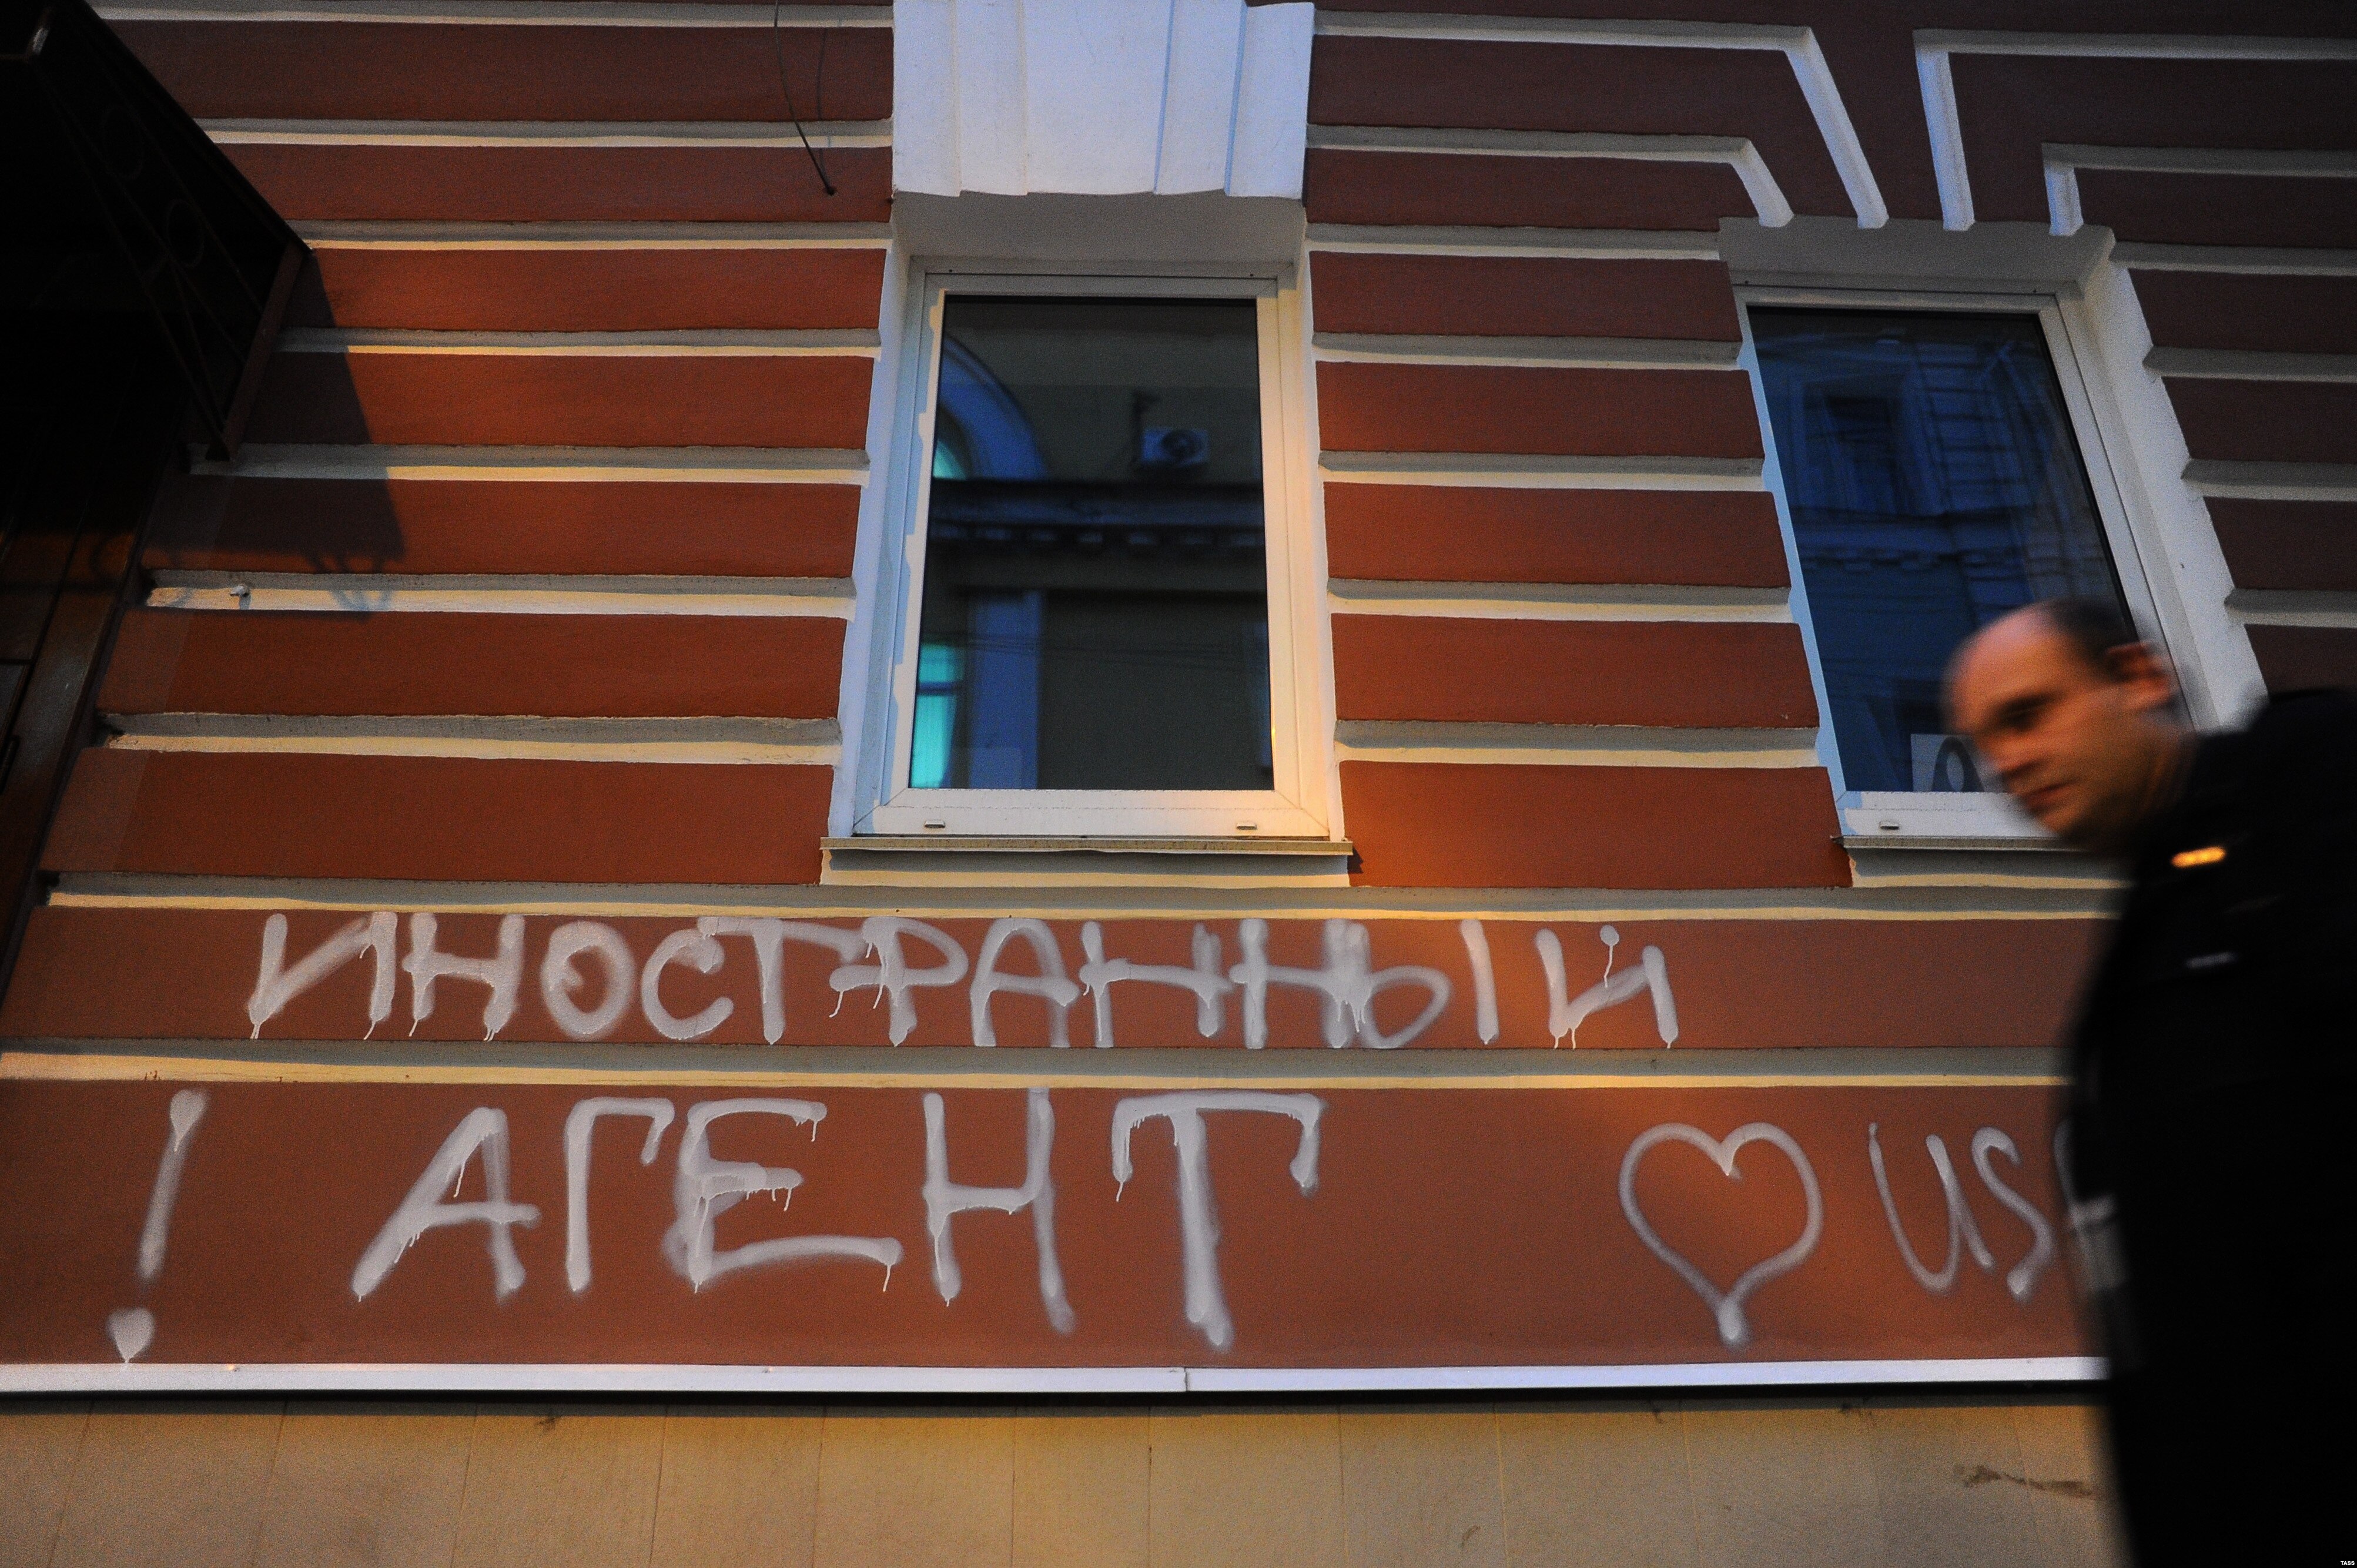 ИНОСТРАННЫЙ
! АГЕНТ ♡ US
TASS